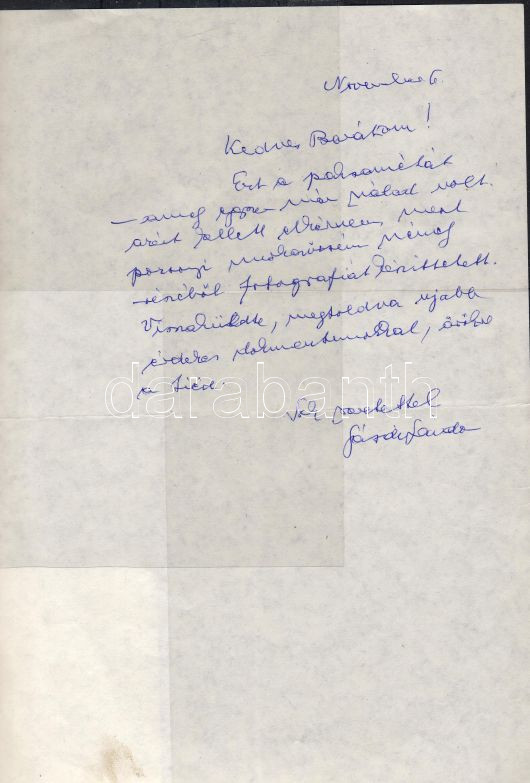 November 6.
Kedves Barátom!
Ezt a paksamétát
– amely egyszer már Nálad volt –
azért kellett elkérnem, mert
pozsonyi munkatársam némely
részéből fotografiát készíttetett.
Visszaküldte, megtoldva újabb
érdekes dokumentumokkal, örökre
a Tiéd.
darabanth
Sok barátsággal
Gászdy Sándor